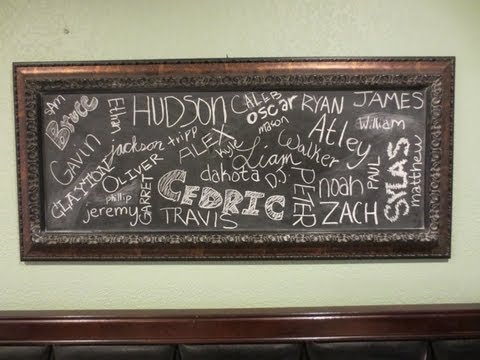 SAM
Bruce
Ethan
HUDSON
CALEB
oscar
mason
RYAN
JAMES
GAVIN
jackson
tripp
ALEX
Kyle
Liam
Walker
Atley
William
CLAYTON
OLIVER
phillip
jeremy
GARRET
dakota
DJ
CEDRIC
TRAVIS
PETER
noah
PAUL
ZACH
SYLAS
matthew